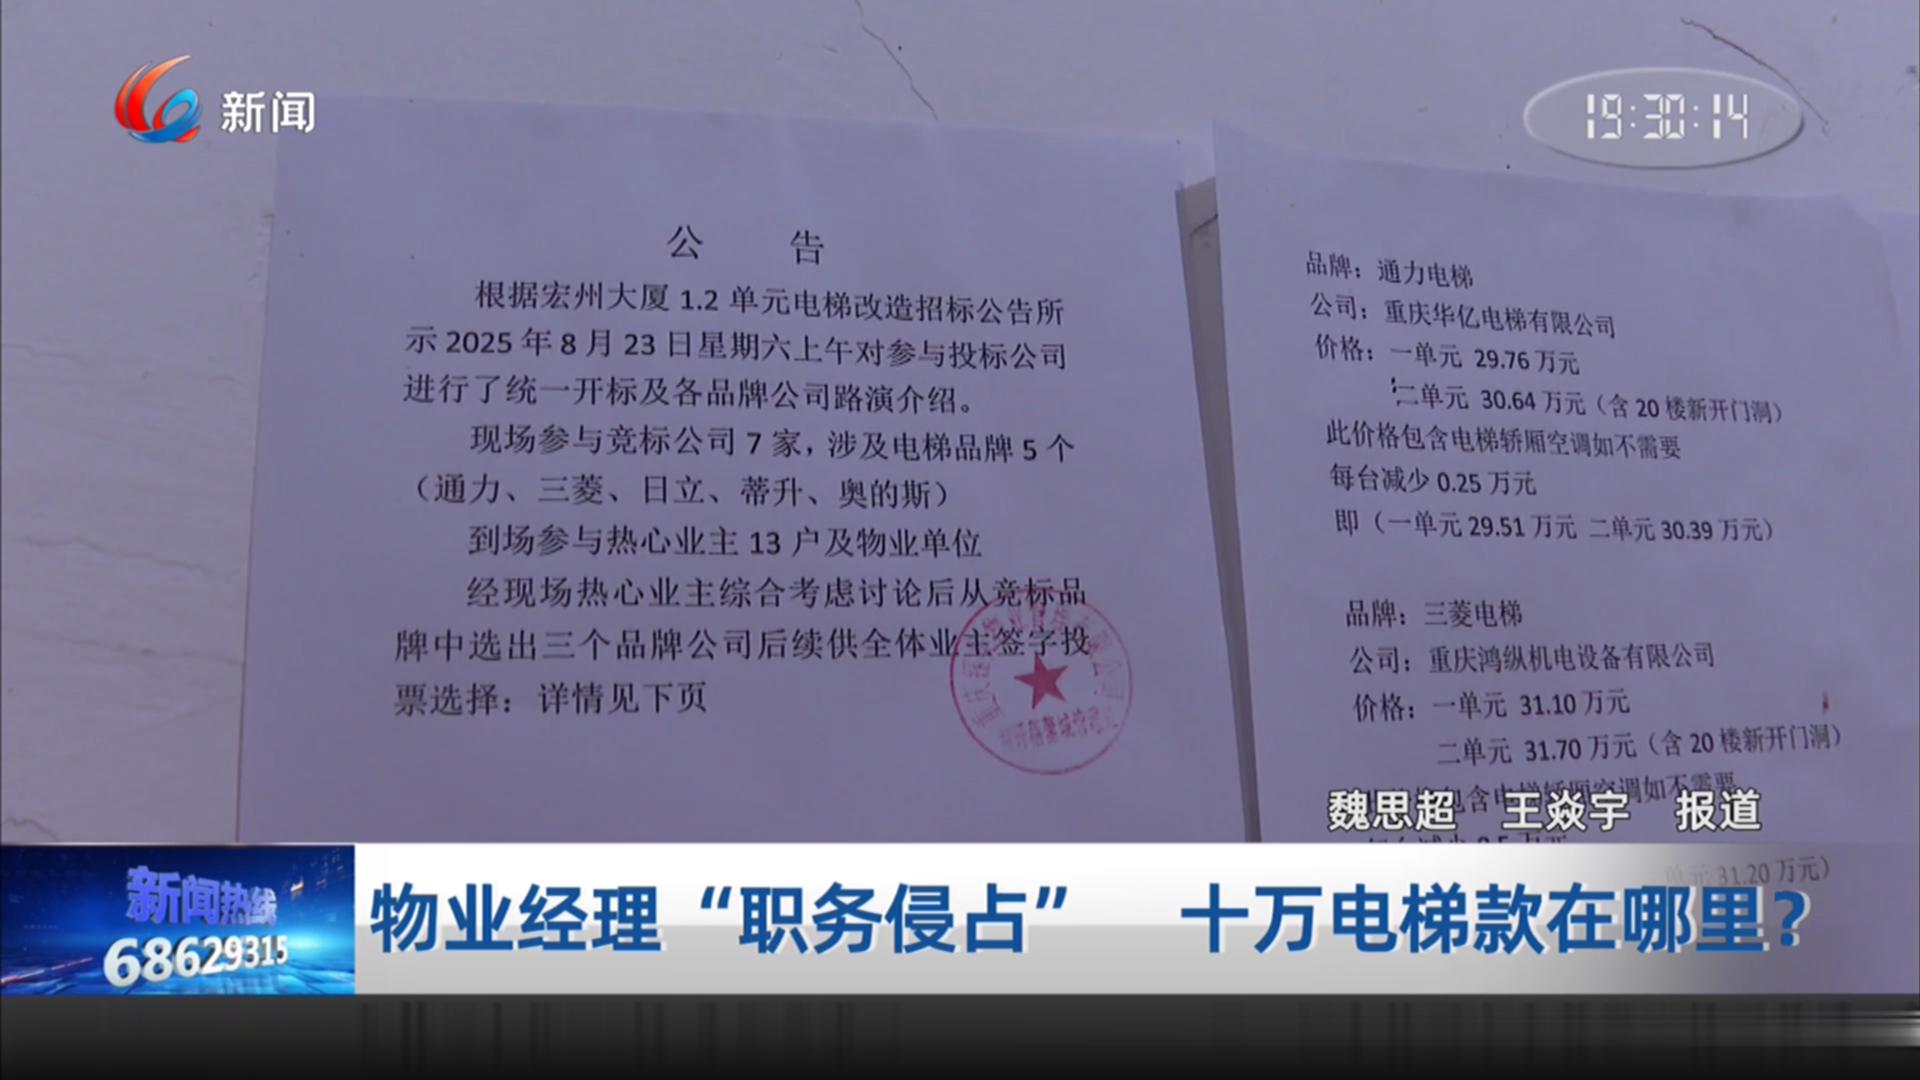 新闻
19:30:14
公 告
根据宏州大厦 1.2 单元电梯改造招标公告所
示 2025 年 8 月 23 日星期六上午对参与投标公司
进行了统一开标及各品牌公司路演介绍。
现场参与竞标公司 7 家，涉及电梯品牌 5 个
（通力、三菱、日立、蒂升、奥的斯）
到场参与热心业主 13 户及物业单位
经现场热心业主综合考虑讨论后从竞标品
牌中选出三个品牌公司后续供全体业主签字投
票选择：详情见下页
品牌：通力电梯
公司：重庆华亿电梯有限公司
价格：一单元 29.76 万元
二单元 30.64 万元（含 20 楼新开门洞）
此价格包含电梯轿厢空调如不需要
每台减少 0.25 万元
即（一单元 29.51 万元 二单元 30.39 万元）
品牌：三菱电梯
公司：重庆鸿纵机电设备有限公司
价格：一单元 31.10 万元
二单元 31.70 万元（含 20 楼新开门洞）
包含电梯轿厢空调如不需要
单元 31.20 万元）
魏思超 王焱宇 报道
新闻热线
68629315
物业经理“职务侵占” 十万电梯款在哪里？